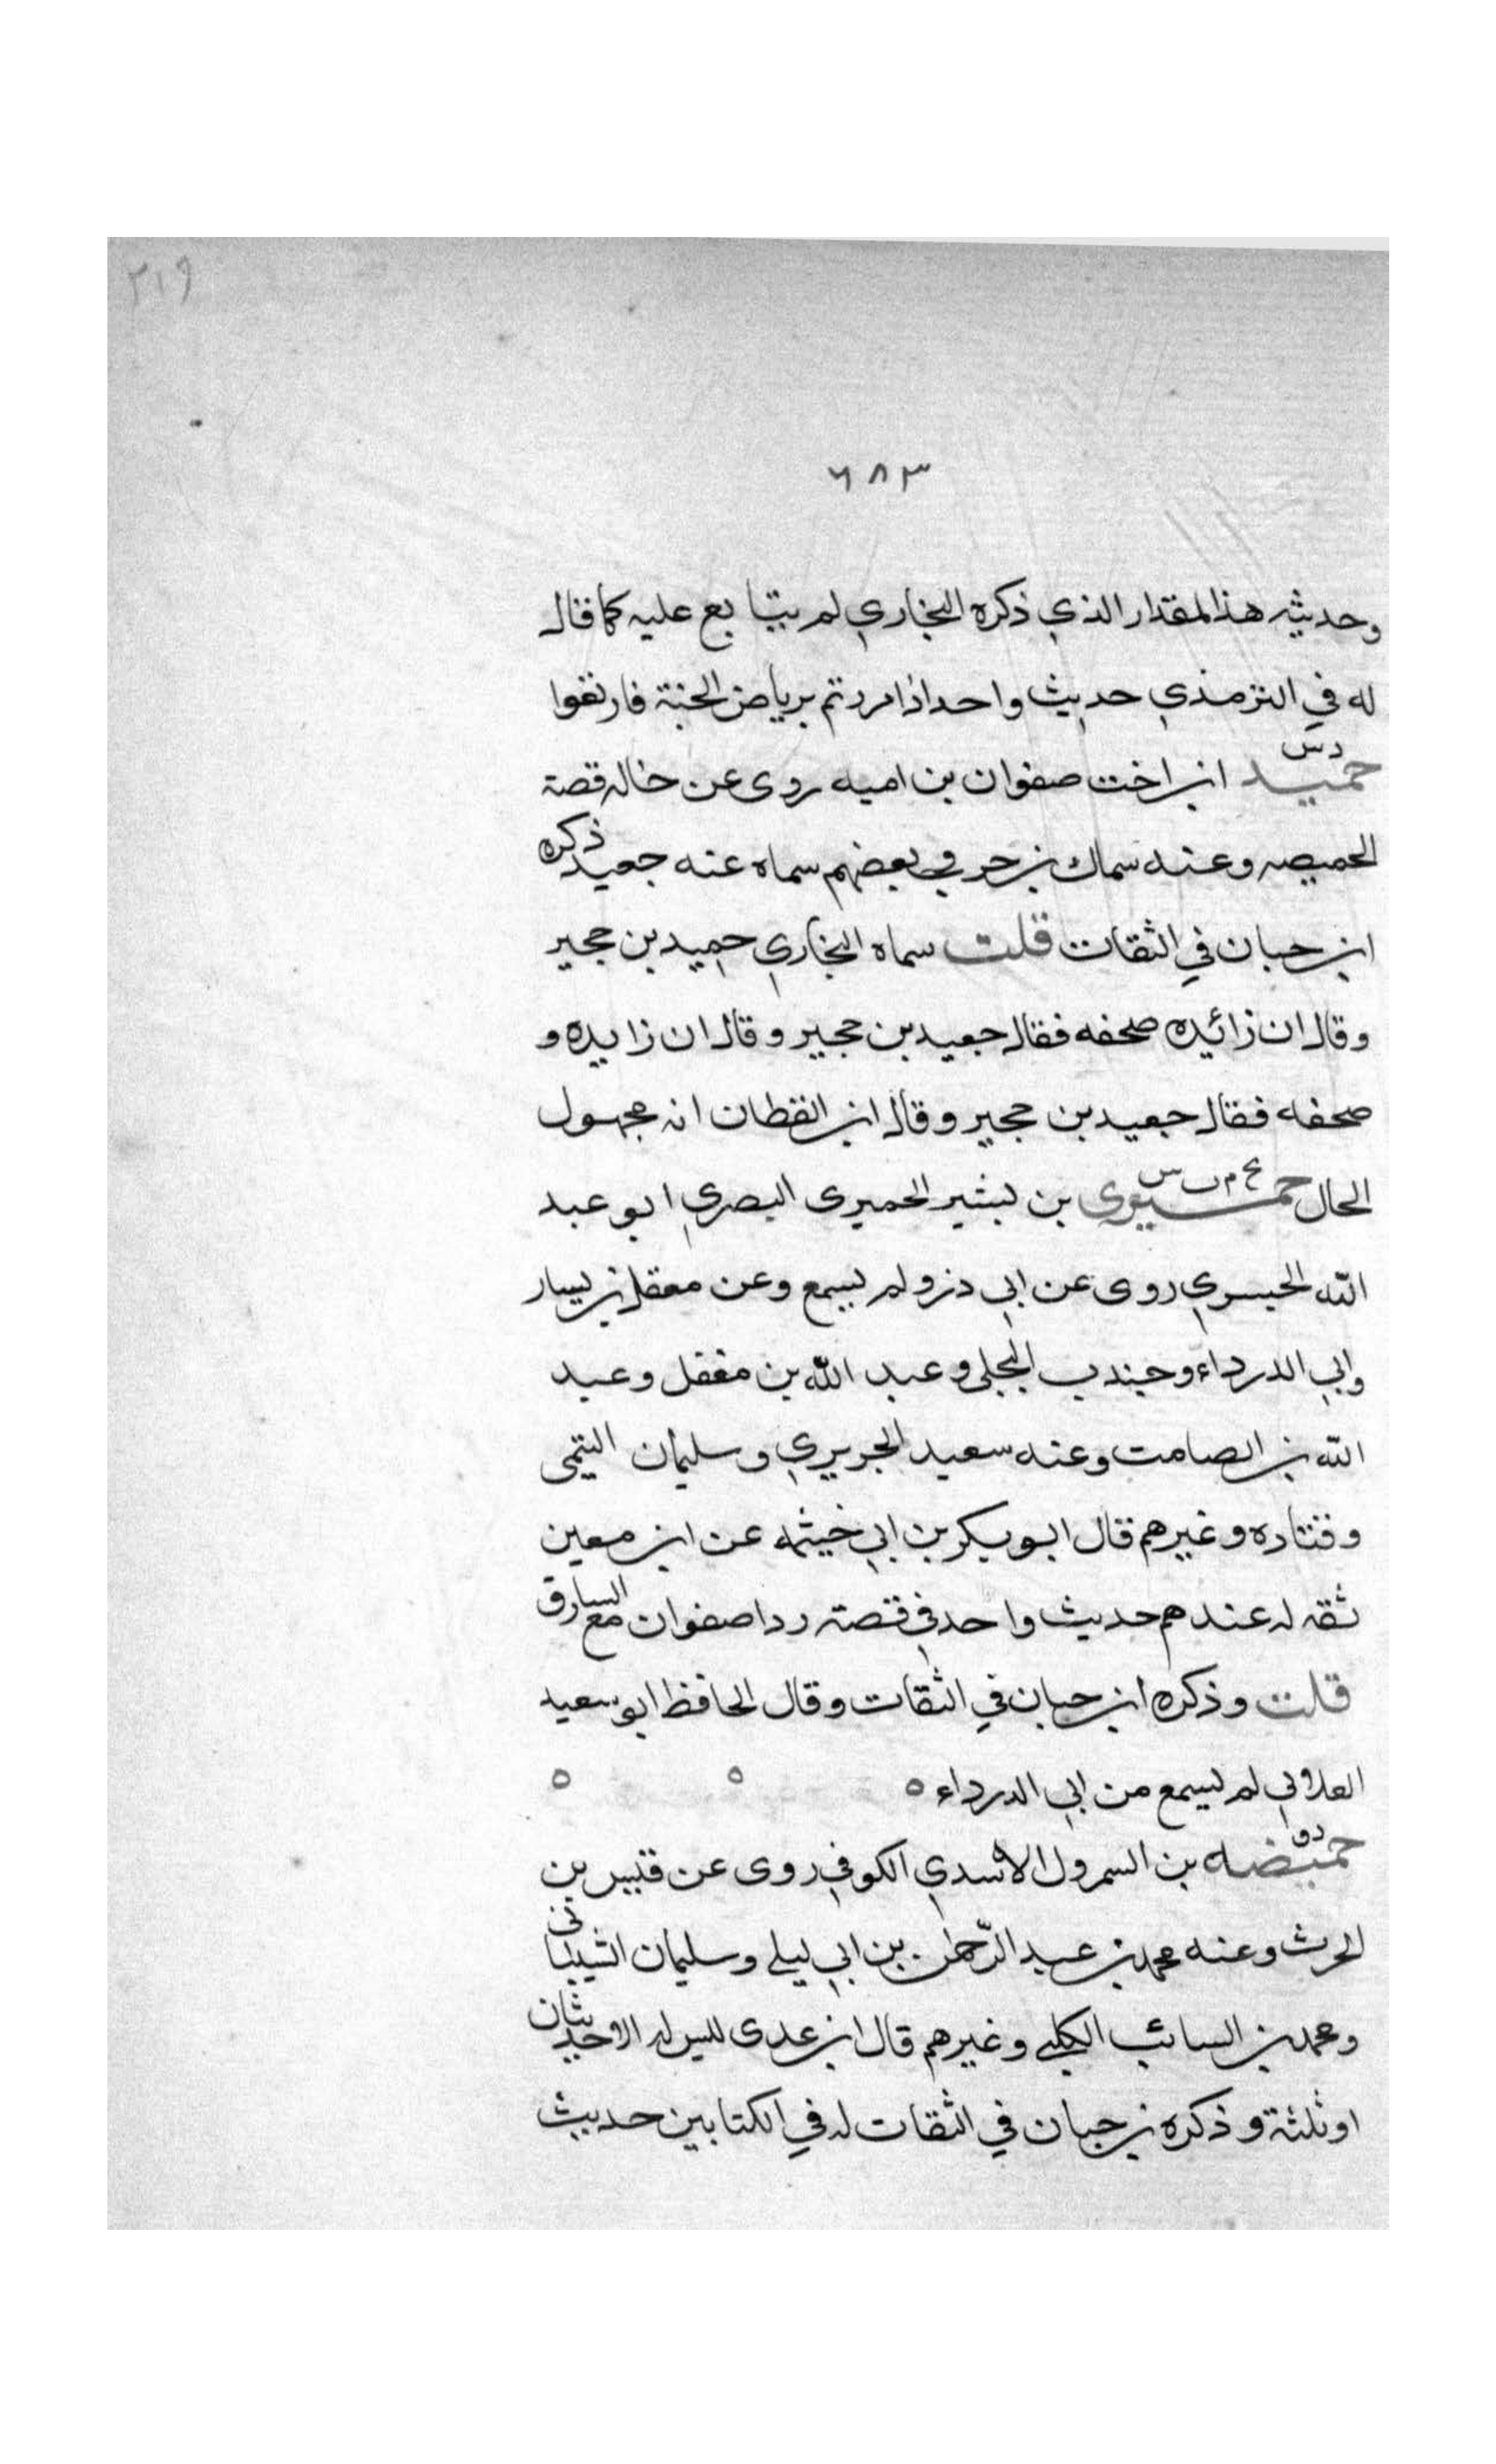 ٢١٩
٦٨٣
وحديثه هذا المقدار الذي ذكره البخاري لم يتابع عليه كما قال
له في الترمذي حديث واحد اذا مررتم برياض الجنة فارتعوا
دس
حميد ابن اخت صفوان بن اميه روى عن خاله قصة
الخميصه وعنه سماك بن حرب بعضهم سماه عنه جعيد ذكره
ابن حبان في الثقات قلت سماه البخاري حميد بن حجير
وقال ان زائيده صحفه فقال جعيد بن حجير وقال ان زايده و
صحفه فقال جعيد بن حجير وقال ابن القطان انه مجهول
الحال حميري بن بشير الحميرى البصري ابو عبد
الله الجسري روى عن ابي ذر ولم يسمع وعن معقل بن يسار
وابي الدرداء وجندب البجلي وعبد الله بن مغفل وعبد
الله بن الصامت وعنه سعيد الجريري وسليمان التيمى
وقتاده وغيرهم قال ابو بكر بن ابي خيثمه عن ابن معين
ثقه له عندهم حديث واحد في قصة ردا صفوان مع السارق
قلت وذكره ابن حبان في الثقات وقال الحافظ ابو سعيد
العلائي لم يسمع من ابي الدرداء ٥ ٥ ٥
حميضه بن السمرول الاسدي الكوفي روى عن قيس بن
الحرث وعنه محمد بن عبد الرحمن بن ابي ليلى وسليمان الشيباني
ومحمد بن السائب الكلبي وغيرهم قال ابن عدى ليس له الا حديثان
او ثلثة وذكره بن حبان في الثقات له في الكتابين حديث